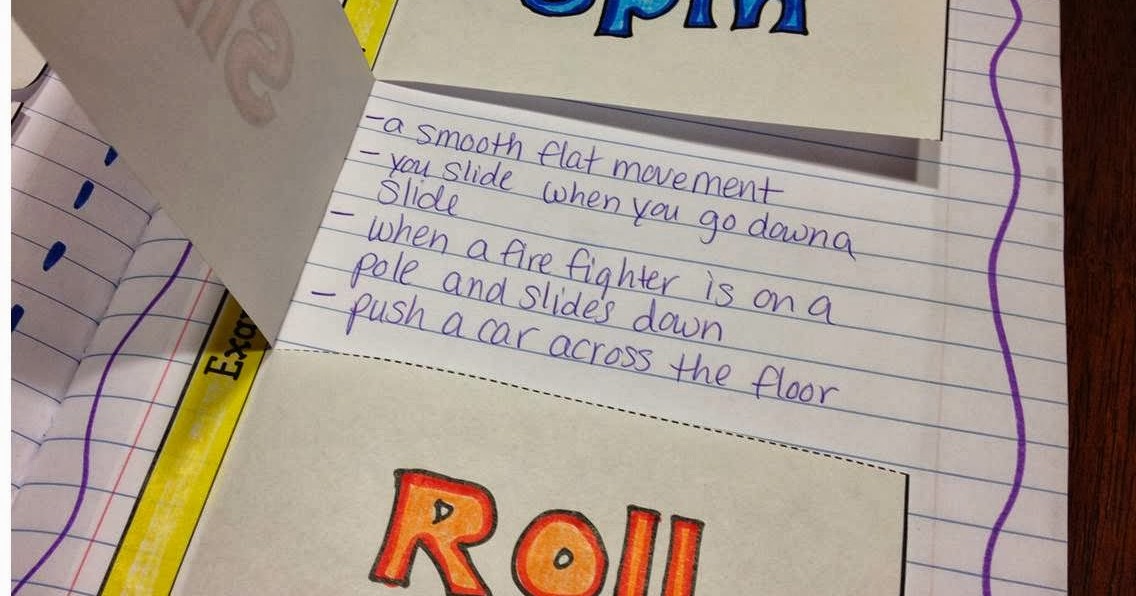 Spin
-a smooth flat movement
-you slide when you go down a
slide
- when a fire fighter is on a
pole and slides down
- push a car across the floor
Roll